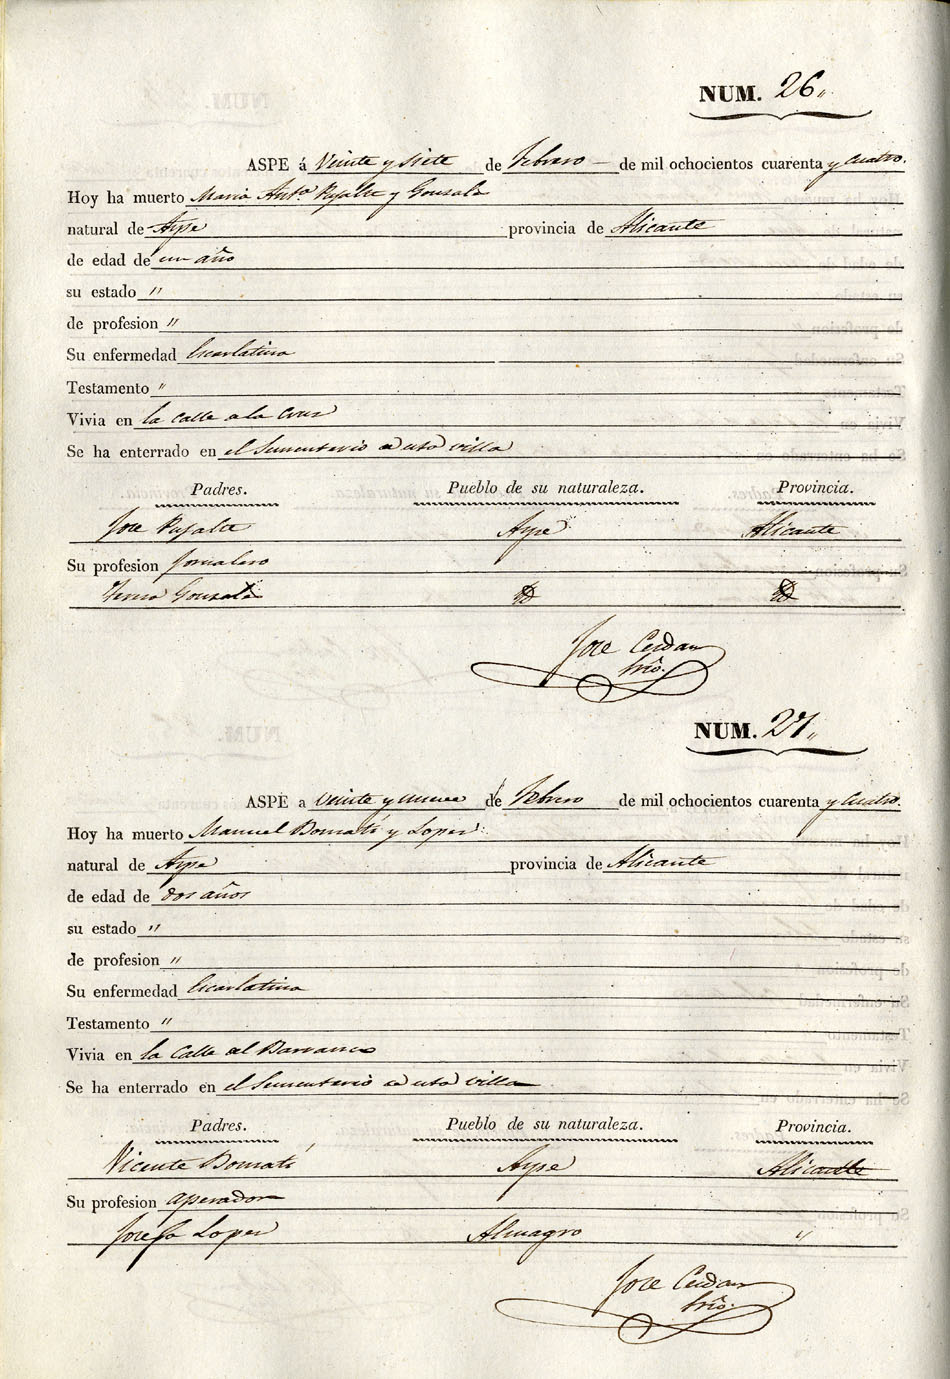 NUM. 26,,
ASPE á Veinte y siete de Febrero — de mil ochocientos cuarenta y Cuatro.
Hoy ha muerto Maria Ant.ª Pujalte y Gonsalo
natural de Aspe provincia de Alicante
de edad de un año
su estado "
de profesion "
Su enfermedad Escarlatina
Testamento "
Vivia en la calle a la Crus
Se ha enterrado en el Sumenterio de esta villa
Padres. Pueblo de su naturaleza. Provincia.
Jose Pujalte Aspe Alicante
Su profesion Jornalero
Teresa Gonsalo Yd Yd
Jose Cerdan
Srio.
NUM. 27,,
ASPE a Veinte y nueve de Febrero de mil ochocientos cuarenta y Cuatro.
Hoy ha muerto Manuel Bomatí y Loper
natural de Aspe provincia de Alicante
de edad de dos años
su estado "
de profesion "
Su enfermedad Escarlatina
Testamento "
Vivia en la Calle al Barranco
Se ha enterrado en el Sumenterio de esta villa
Padres. Pueblo de su naturaleza. Provincia.
Vicente Bomatí Aspe Alicante
Su profesion aperador
Josefa Loper Almagro "
Jose Cerdan
Srio.